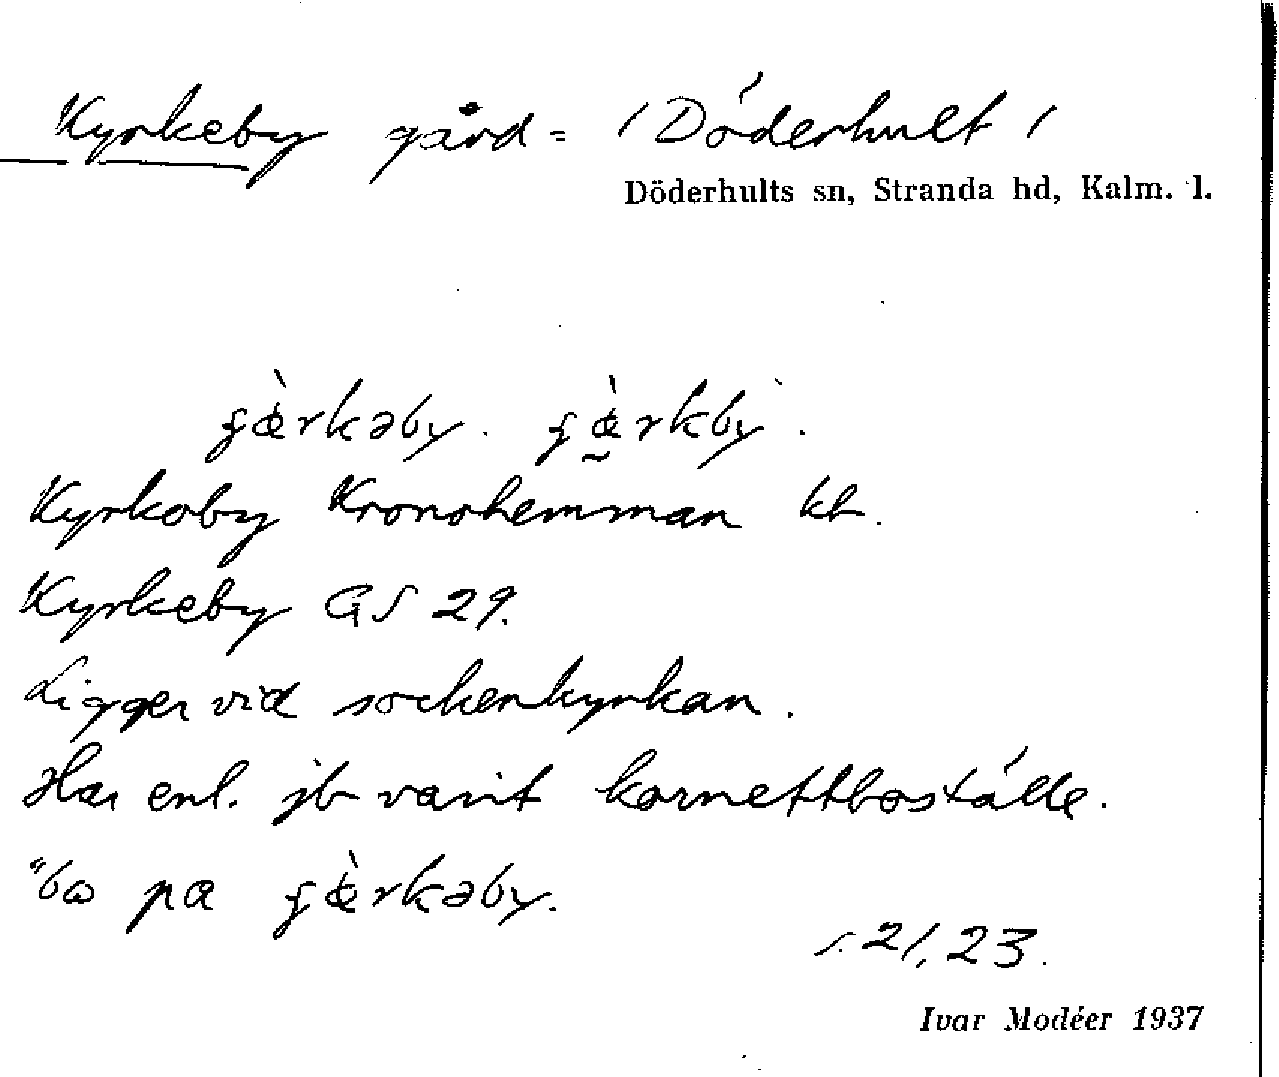 Kyrkeby gård = (Döderhult)
Döderhults sn, Stranda hd, Kalm. l.
ʄæ̀rkəby. ʄæ̀rkby.
Kyrkoby Kronohemman kb.
Kyrkeby GS 29.
Ligger vid sockenkyrkan.
Har enl. jb varit kornettboställe.
"bω pα ʄæ̀rkəby.
s. 21, 23.
Ivar Modéer 1937